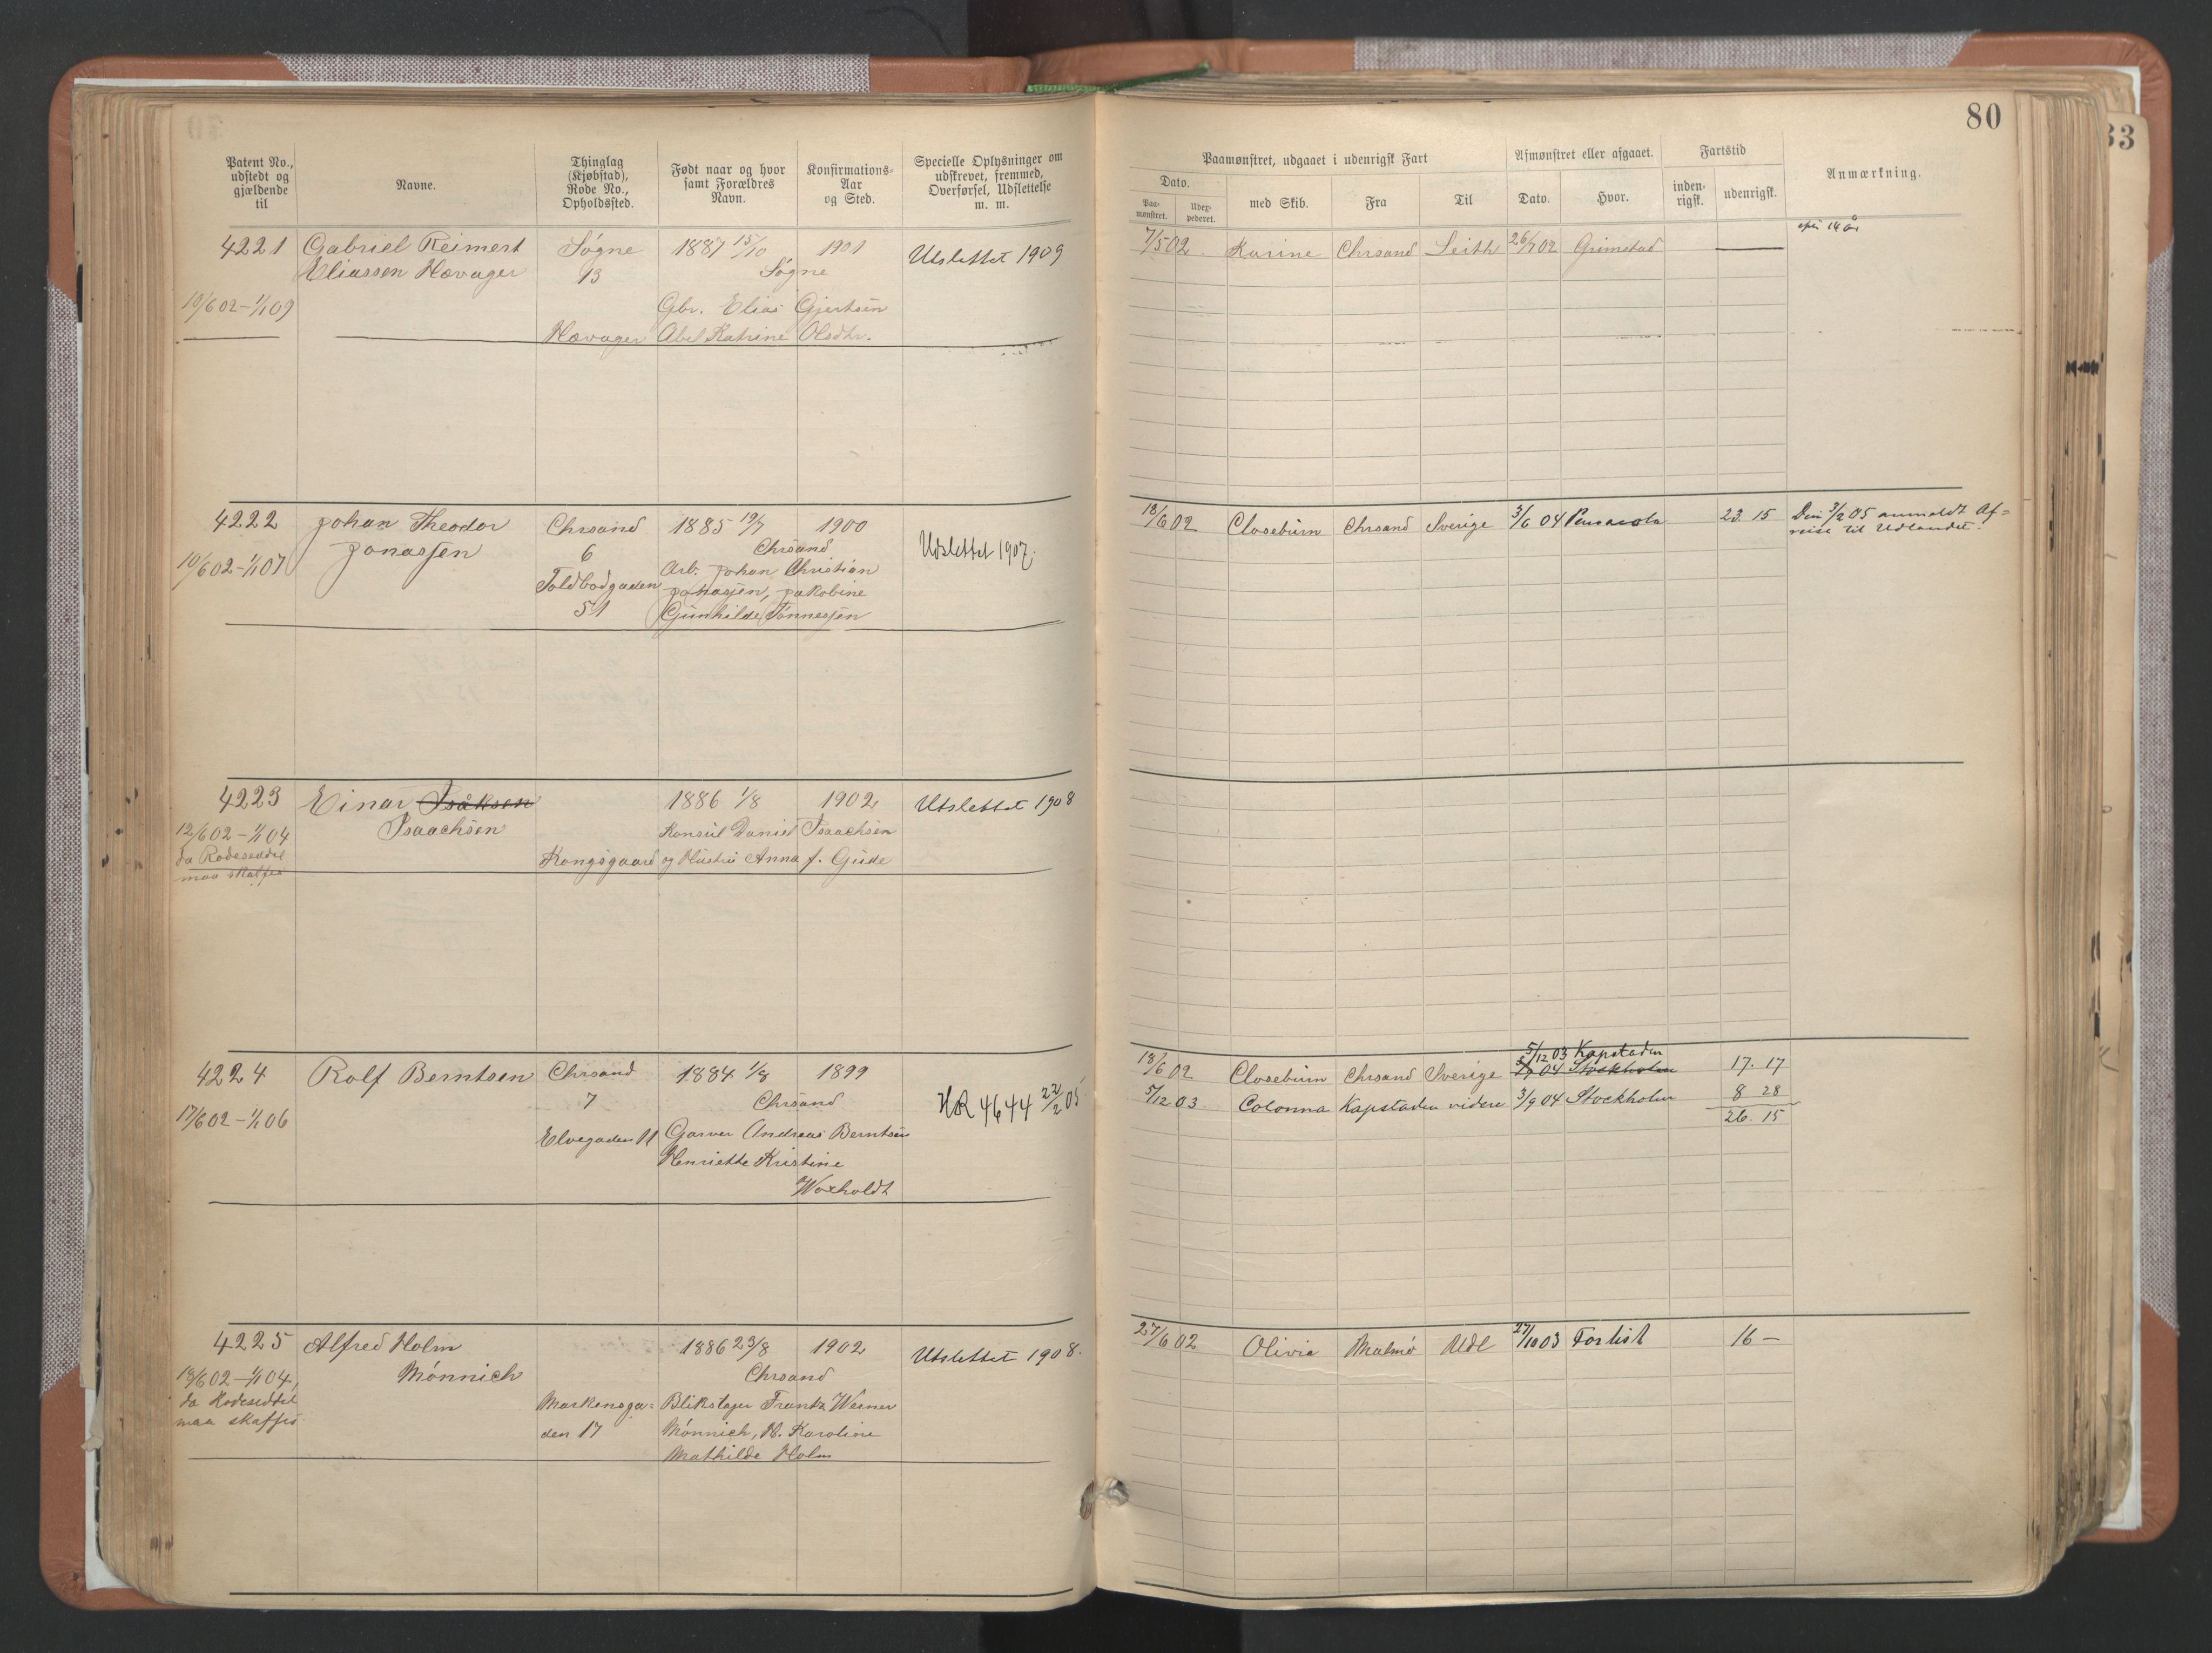 80
33
Patent No., udstedt og gjældende til
Navne.
Thinglag (Kjøbstad), Rode No., Opholdssted.
Født naar og hvor samt Forældres Navn.
Konfirmations-Aar og Sted.
Specielle Oplysninger om udskrevet, fremmed, Overførsel, Udslettelse m. m.
Paamønstret, udgaaet i udenrigsk Fart
Afmønstret eller afgaaet.
Fartstid
Anmærkning.
Dato.
Paa-mønstret.
Udex-pederet.
med Skib.
Fra
Til
Dato.
Hvor.
inden-rigsk.
udenrigsk.
4221 Gabriel Reimert Søgne 1887 15/10 1901 Utslettet 1909
Eliassen Hævager 13 Søgne
10/6 02 – 1/1 09 Gbr. Elias Gjertsen
Hævager Abel Katrine Olsdtr.
7/5 02 Karine Chrsand Leith 26/7 02 Grimstad — 14 år
4222 Johan Theodor Chrsand 1885 19/7 1900
Jonassen 6 Chrsand Udslettet 1907.
10/6 02 – 1/1 07 Toldbodgaden Arb. Johan Christian
51 Johassen, Jakobine
Gunhilde Tønnessen
18/6 02 Closeburn Chrsand Sverige 3/6 04 Pensacola 23 15 Den 3/2 05 anmeldt Af=
reise til Udlandet.
4223 Einar Isaksen 1886 1/8 1902 Utslettet 1908
Isaachsen Konsul Daniel Isaachsen
12/6 02 – 1/1 04 Kongsgaard og Hustru Anna f. Gude
da Rodeseddel
maa skaffes
4224 Rolf Berntsen Chrsand 1884 1/8 1899
17/6 02 – 1/1 06 7 Chrsand HR 4644 22/2 05
Elvegaden 11 Garver Andreas Berntsen
Henriette Kristine
Woxholdt
5/12 03 Kapstaden
18/6 02 Closeburn Chrsand Sverige 04 Stockholm 17. 17
5/12 03 Colonna Kapstaden videre 3/9 04 Stockholm 8 28
26. 15
4225 Alfred Holm 1886 23/8 1902 Utslettet 1908.
Mønnich Chrsand
18/6 02 – 1/1 04, Markensga= Blikslager Frantz Werner
da Rodeseddel den 17 Mønnich, H. Karoline
maa skaffes. Mathilde Holm
27/6 02 Olivia Malmø Udl 27/10 03 Forlist 16 —